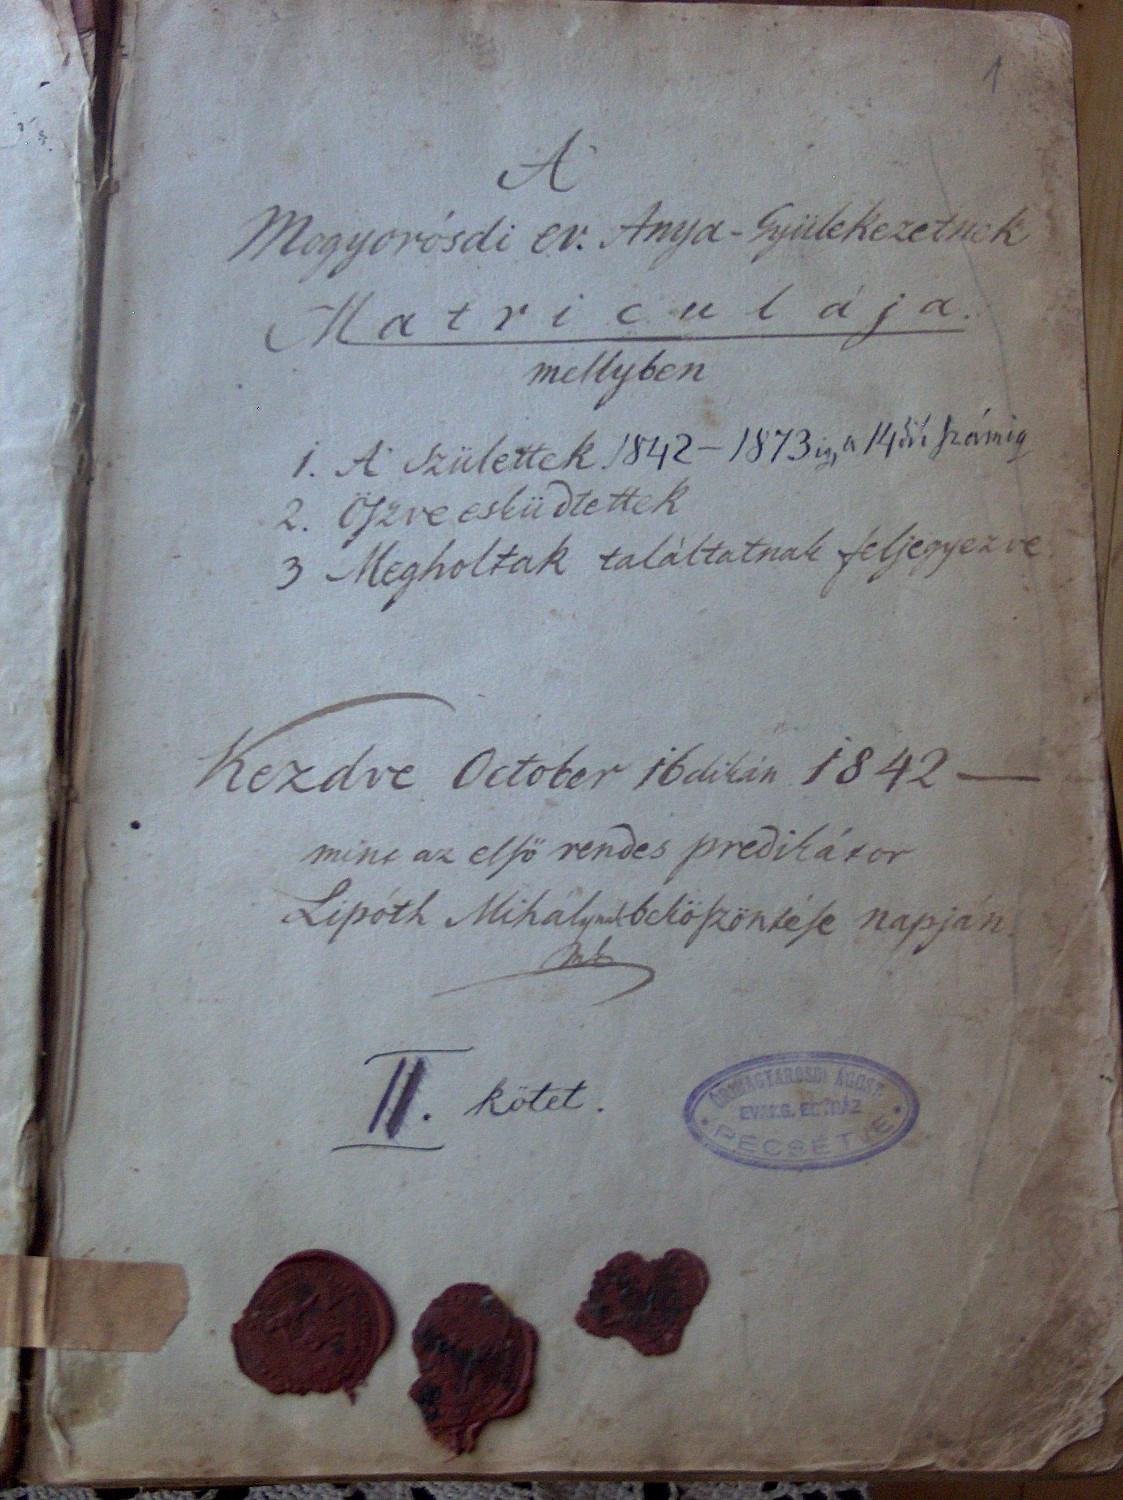 1
A
Mogyorósdi ev. Anya-Gyülekezetnek
Matriculája.
mellyben
1. A születtek 1842–1873ig, a 14dik számig
2. Öszve esküdtettek
3 Megholtak találtatnak feljegyezve
Kezdve October 16dikán 1842 —
mint az első rendes predikátor
Lipóth Mihálynak beköszöntése napján.
II. kötet.
ŐRIMAGYARÓSDI ÁGOST.
EVANG. EGYHÁZ
PECSÉTJE